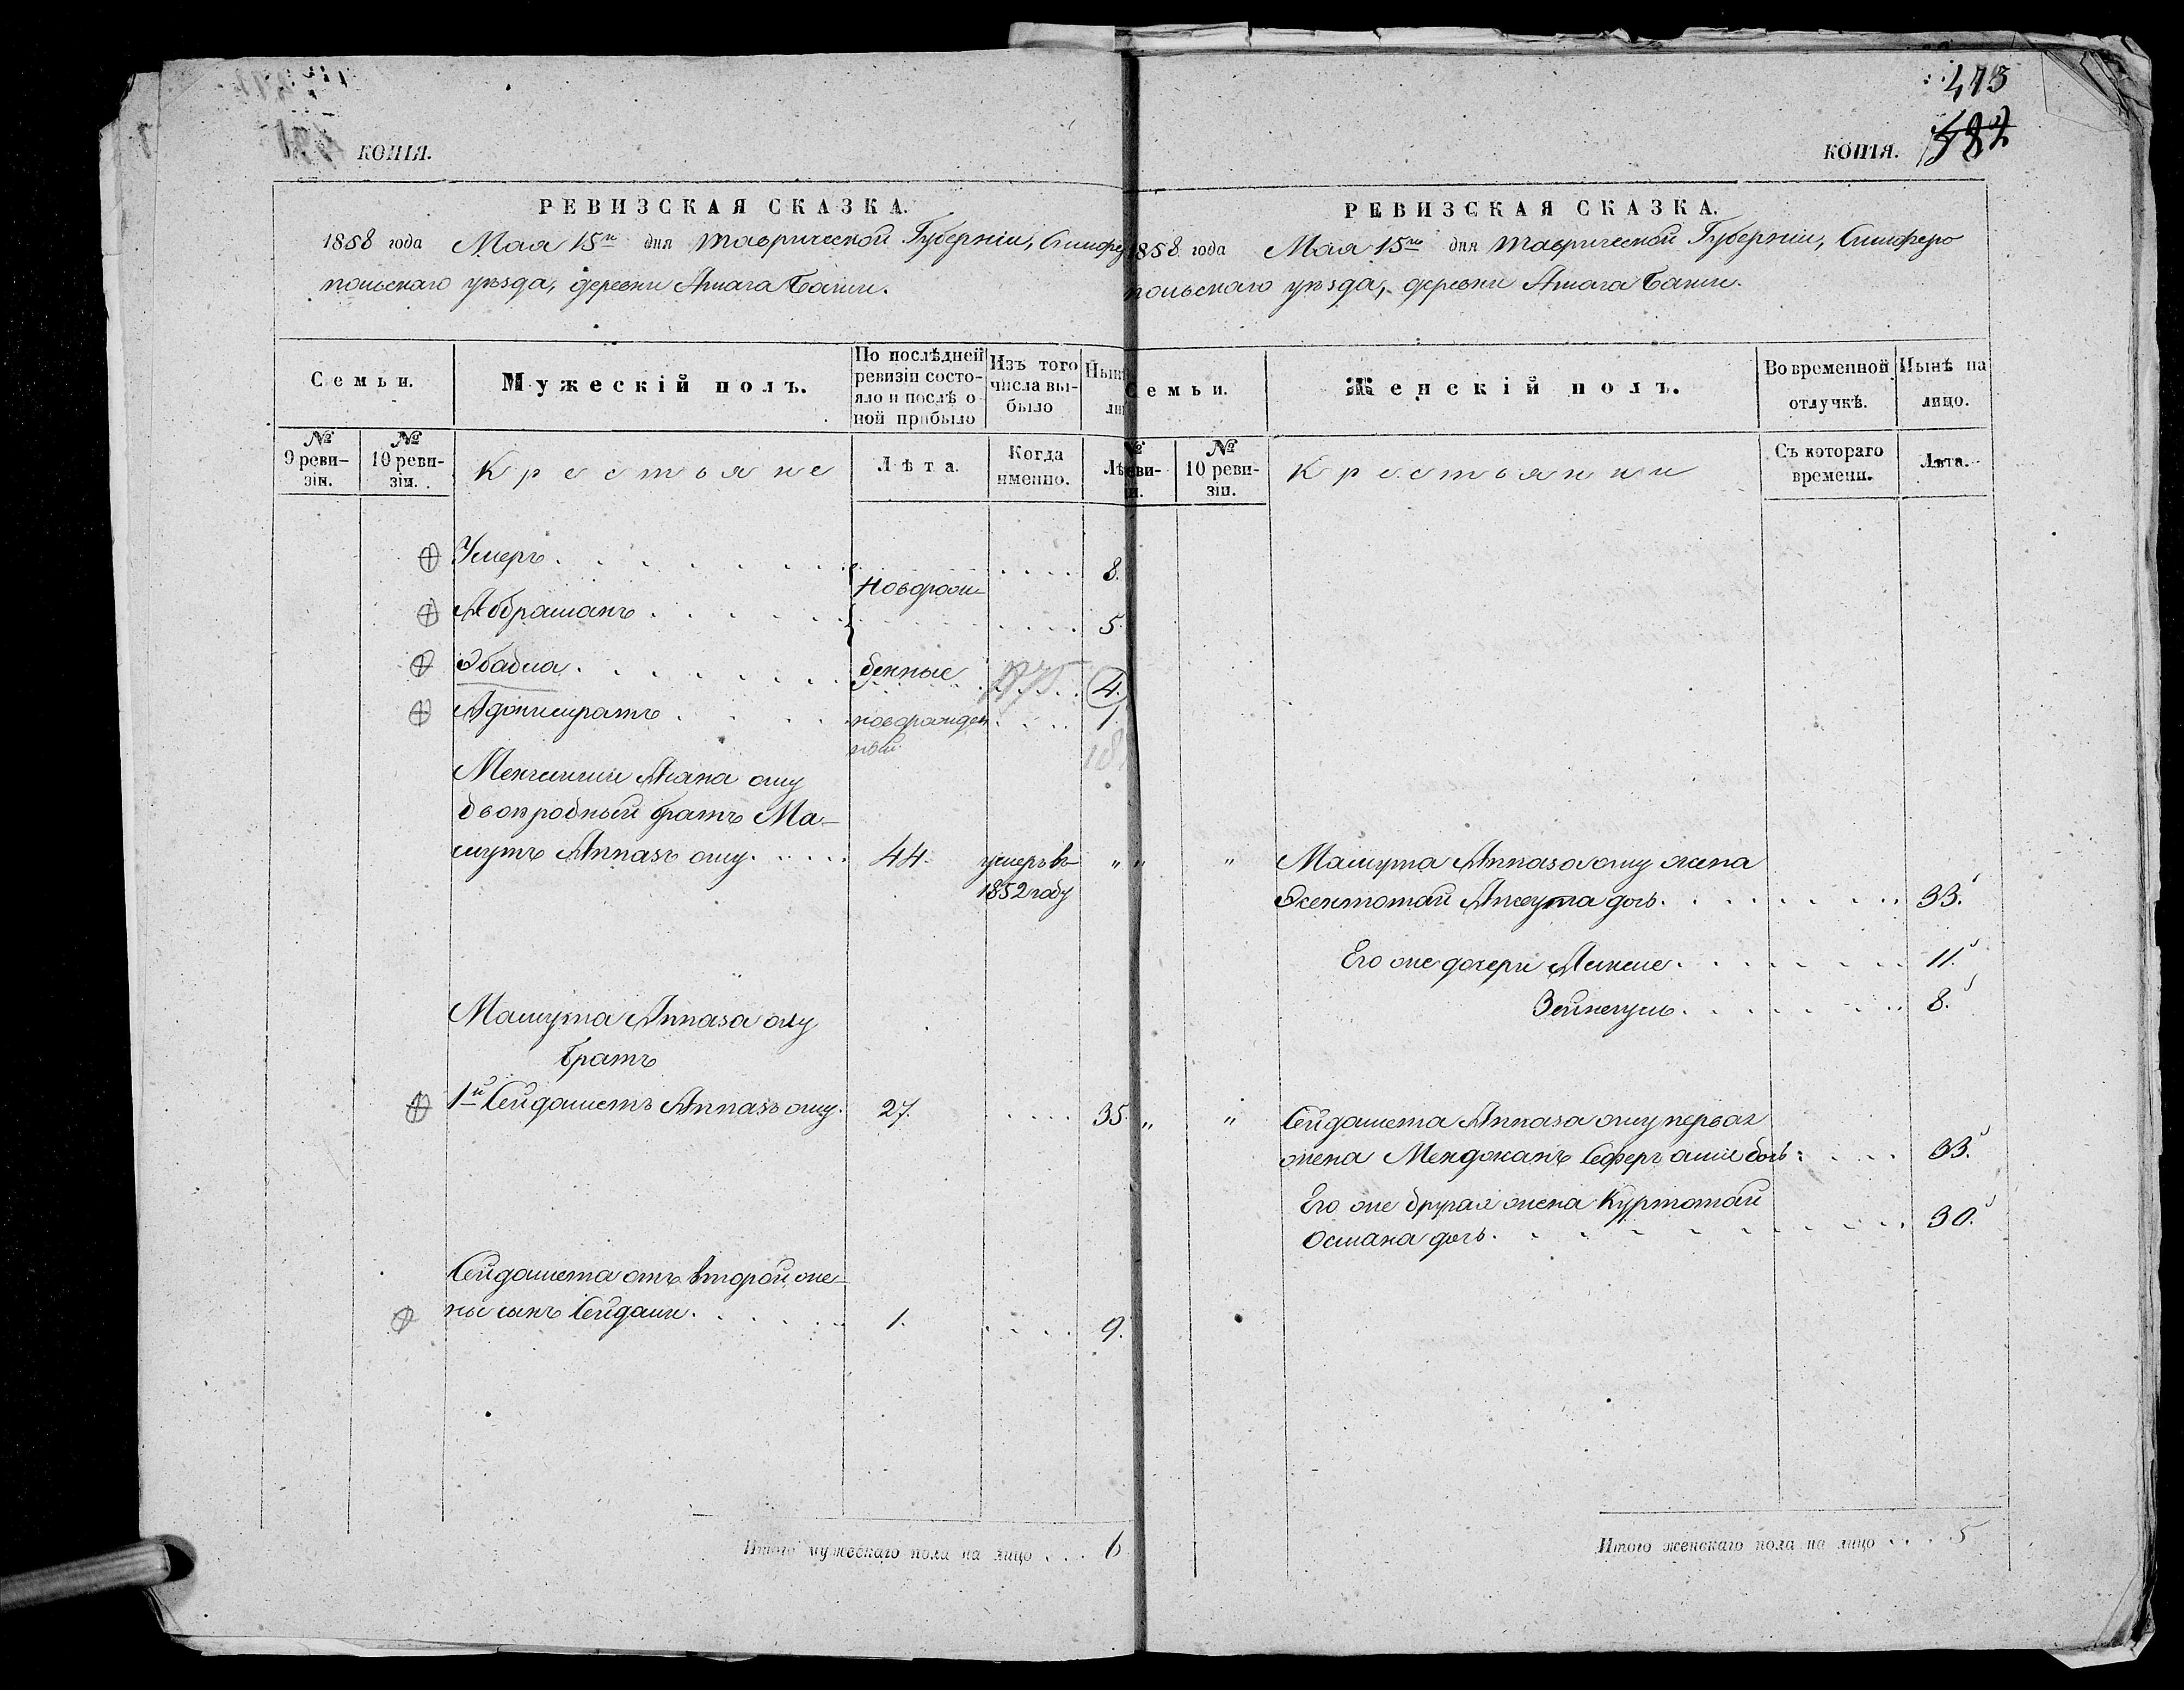 КОПІЯ.
РЕВИЗСКАЯ СКАЗКА.
1858 года Мая 15го дня Таврической Губерніи, Симферо
польскаго уѣзда, деревни Ашага Баши.
Семьи.
Мужескій полъ.
По послѣдней
ревизіи состо-
яло и послѣ о
ной прибыло
Изъ того
числа вы-
было
Нын
ли
№
9 реви-
зіи.
№
10 реви-
зіи.
Крестьяне
Лѣта.
Когда
именно.
Лѣ
Умеръ 8.
новорож-
Аббраманъ 5
Эбабла денные 1875 4.
новорожден 1.
ный
18
Менглиши Аяна оглу
двоюродный братъ Ма-
мутъ Аппазъ оглу 44. умеръ въ "
1852 году
Мамута Аппаза оглу
братъ
1й Сейдаметъ Аппазъ оглу. 27. 35.
Сейдамета отъ второй же-
ны сынъ Сейдали 1. 9.
Итого мужескаго пола на лицо 6
473
582
КОПІЯ.
РЕВИЗСКАЯ СКАЗКА.
1858 года Мая 15го дня Таврической Губерніи, Симферо
польскаго уѣзда, деревни Ашага Баши.
Семьи.
Женскій полъ.
Во временной
отлучкѣ.
Нынѣ на
лицо.
№
еви-
и.
№
10 реви-
зіи.
Крестьянки
Съ котораго
времени.
Лѣта.
" " Мамута Аппаза оглу жена
дочь. 33.
Его же дочери 11.
8.
" " Сейдамета Аппаза оглу первая
жена Менджанъ Сеферъ дочь 33.
Его же другая жена Куртотай
Османа дочь. 30.
Итого женскаго пола на лицо 5